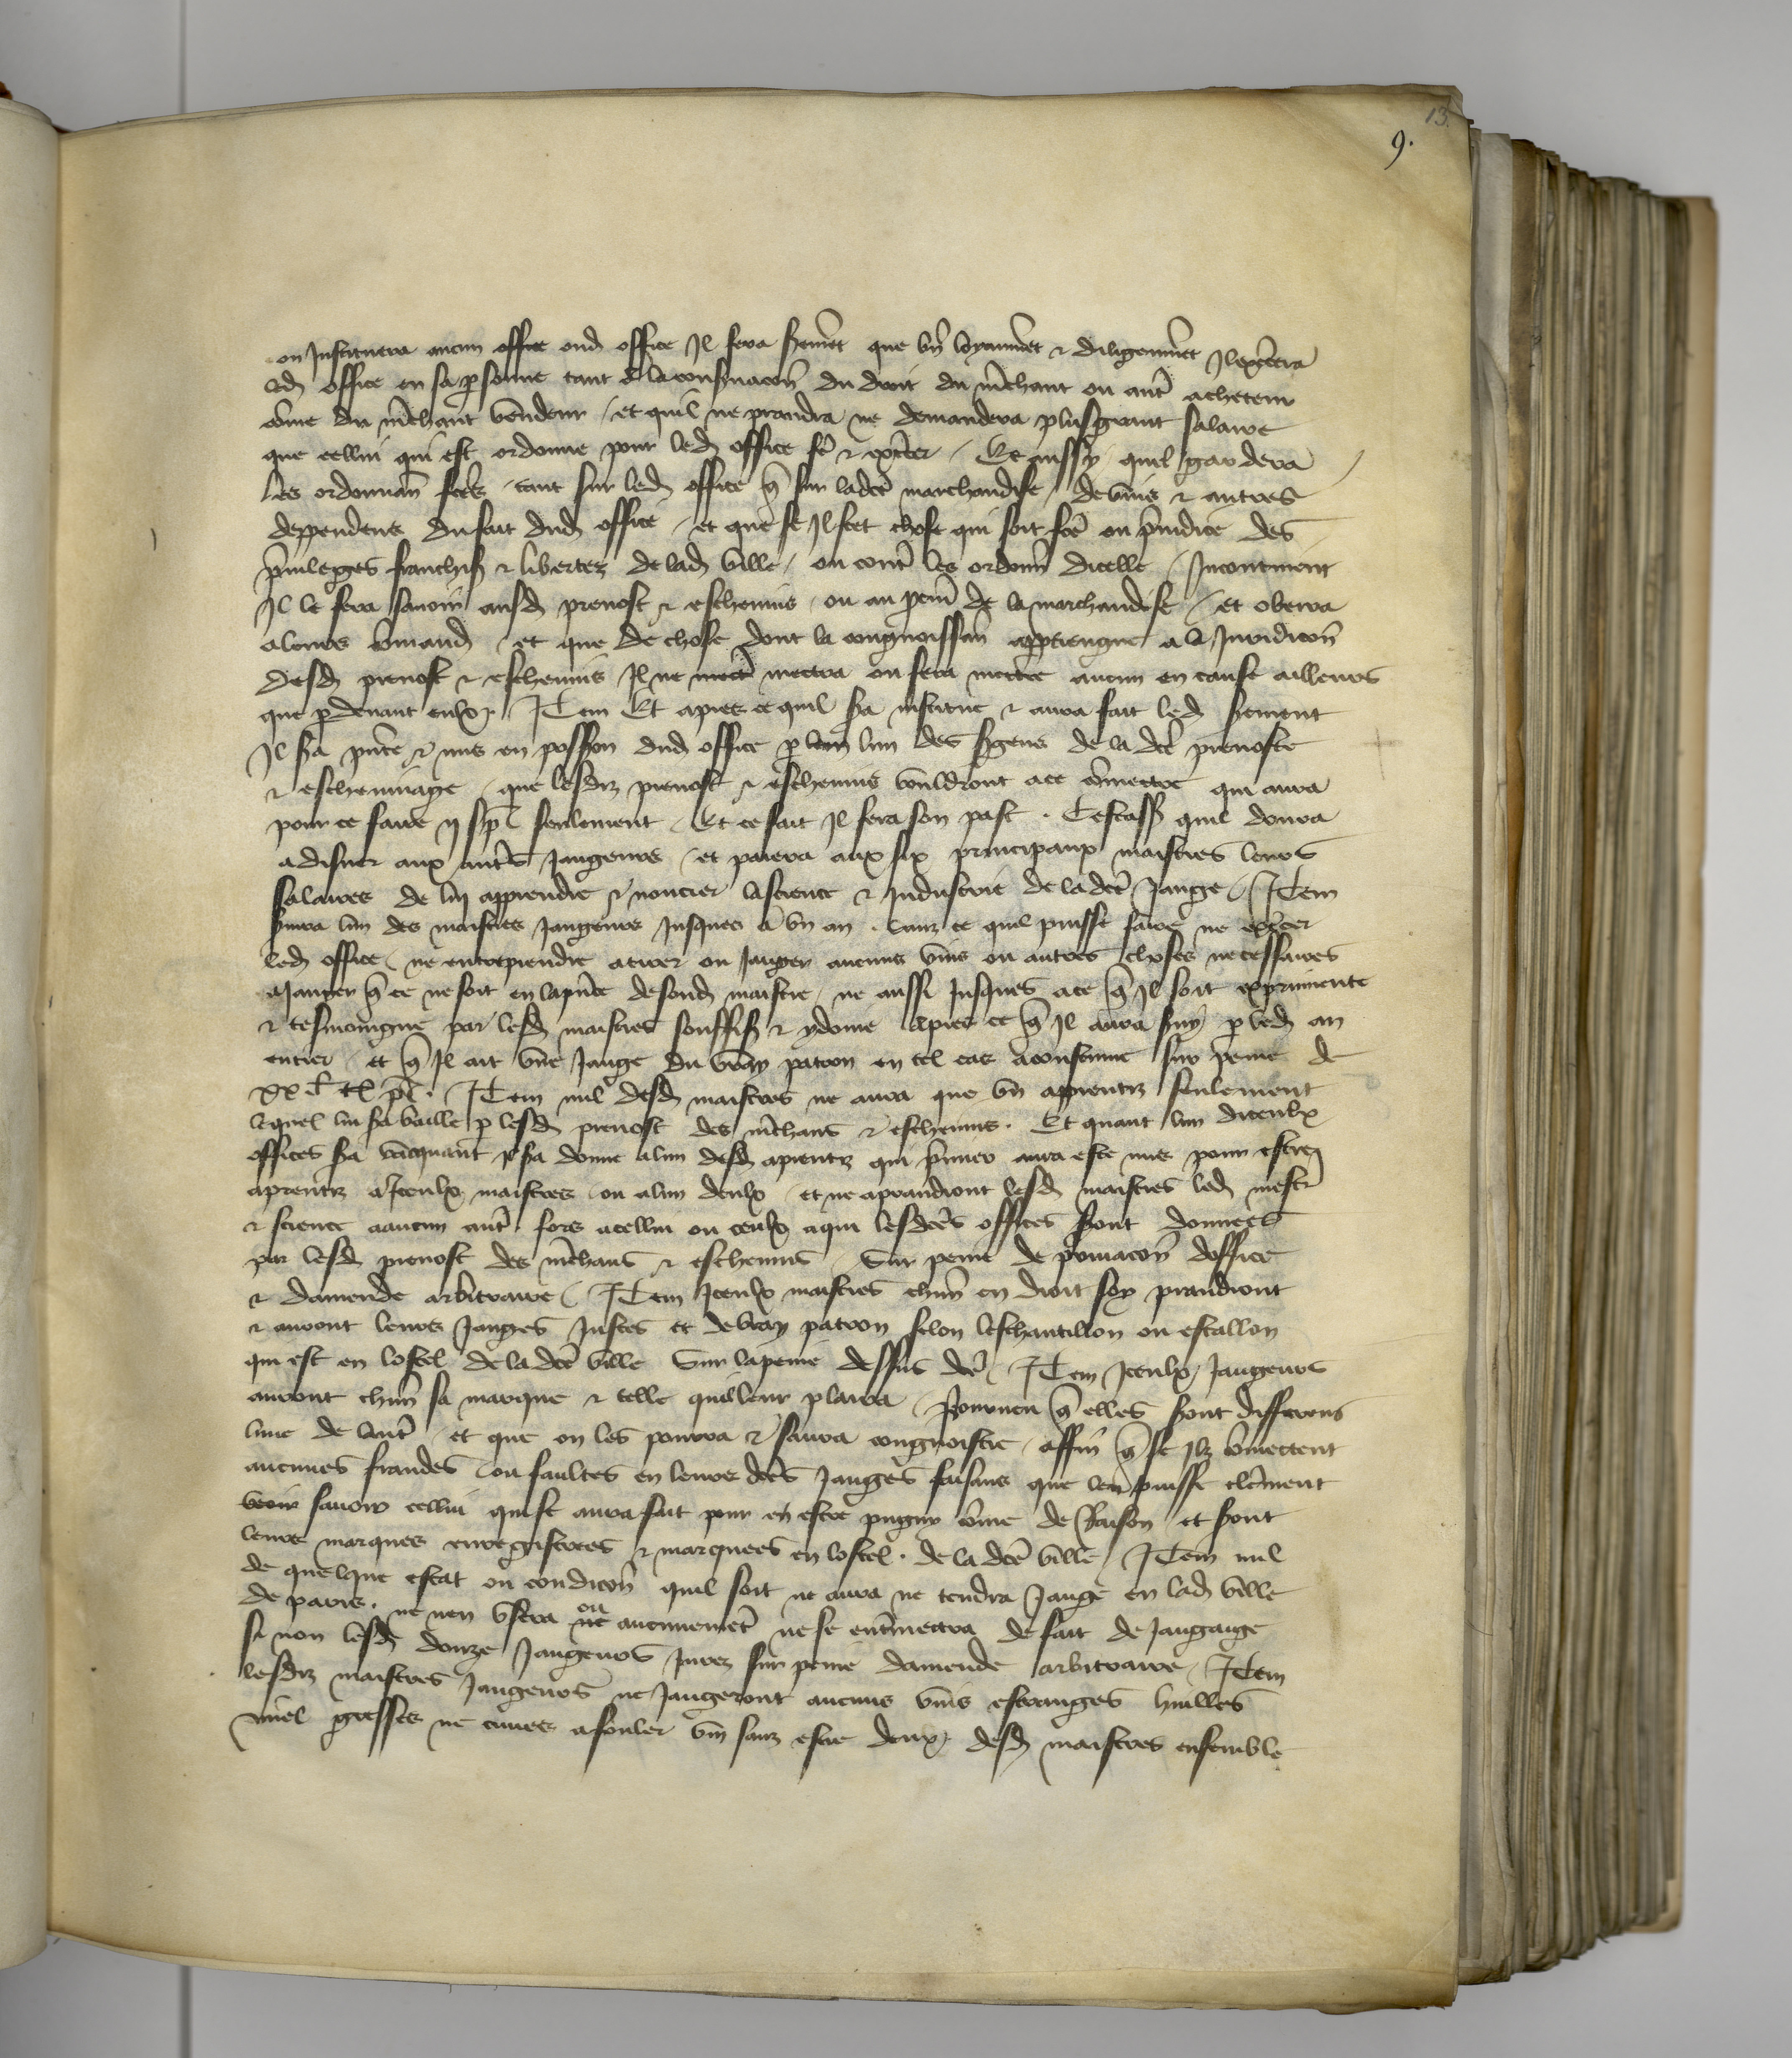 13.
9.
on Instituera aucun office oud office Il fera serement que bn loyaumt & diligemmt Il excera
led office en sa psonne tant a la consuacon du droit du mchant ou aut acheteur
come du mchant vendeur / et quil ne prandra ne demandera plusgrant salaire
que cellui qui est ordonne pour led office fe & excer / Et aussy quil gardera
les ordonnan fces tant sur led office q sur ladce marchandise / de vins & autres
deppendens du fait dud office / et que se Il scet chose qui soit fce ou preiudice des
puileges franchis & libertez de lad ville / ou cont les ordonn dicelle / Incontinent
Il le fera savoir ausd prevost & eschevins / ou au pcur de la marchandise / et obeira
a leurs comand / et que de chose dont la congnoissan apptiengne a la Juridicon
desd prevost & eschevins Il ne mect mectra ou fera mectre aucun en cause ailleurs
que pdevant eulx / Item Et apres ce quil sa institue & aura fait led serment
Il sa pnte & mis en possion dud office p lun des sgens de la dce prevoste
& eschevinage / que lesdiz prevost & eschevins vouldront ace comectre qui aura
pour ce faire ij s p seulement / Et ce fait Il fera son past . Cestass quil donra
a disner aux auts Jaugeurs / et paiera aux six principaux maistres leurs
salaires de luy apprendre & moncrer la science & Industrie de la dce Jauge / Item
suira lun des maistres Jaugeurs Jusques a un an . sanz ce quil puisse faire ne excer
led office / ne entreprendre a tirer ou Jauger aucuns vins ou autres choses necessaires
a Jauger q ce ne soit en la pnce de sond maistre / ne aussi Jusques ace q Il soit exprimente
& tesmoingne par lesd maistres souffis & ydoine apres ce q Il aura suy p led an
entier / et q Il ait une Jauge du vray patron en tel cas acoustume sur peine de
xx s p . Item nul desd maistres ne aura que un apprentiz seulement
lequel lui sa baille p lesd prevost des mchans & eschevins . Et quant lun diceulx
offices sa vacquant Il sa donne a lun desd aprentiz qui pmier aura este mis pour estre
aprentiz a Iceulx maistres ou a lun deulx / et ne aprandront lesd maistres led mest
& science a aucun aut fors a cellui ou ceulx a qui lesdces offices sont donnees
par lesd prevost des mchans & eschevins / Sur peine de privacon doffice
& damende arbitraire / Item Iceulx maistres chun en droit soy prandront
& auront leurs Jauges Justes et de vray patron selon leschantillon ou estallon
qui est en lostel de la dce ville Sur la peine dessus dce / Item Iceulx Jaugeurs
auront chun sa marque & telle quil leur plaira / pourveu q elles sont differens
lune de laut / et que on les pourra & saura congnoistre / affin q se Ilz comectent
aucunes fraudes ou faultes en leurs dces Jauges faisans que len puisse clement
veoir savoir cellui qui ce aura fait pour en estre pugny come de Raison / et sont
leurs marques enregistrees & marquees en lostel . de la dce ville / Item nul
de quelque estat ou condicon quil soit ne aura ne tendra Jauge en lad ville
de paris . ne nen usera ne ou aucunement ne se entmectra de fait de Jaugaige
si non lesd douze Jaugeurs Jurez sur peine damende arbitraire / Item
lesdiz maistres Jaugeurs ne Jaugeront aucuns vins estranges huilles
miel gresses ne cuves a fouler vin sanz estre deux desd maistres ensemble